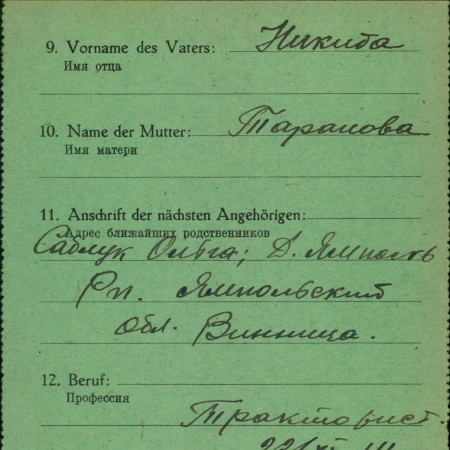 9. Vorname des Vaters: Никита
Имя отца
10. Name der Mutter: Таранова
Имя матери
11. Anschrift der nächsten Angehörigen:
Адрес ближайших родственников
Саблук Ольга; Д. Ямполь
Рп. Ямпольский
обл. Винница.
12. Beruf:
Профессия
Тракторист.